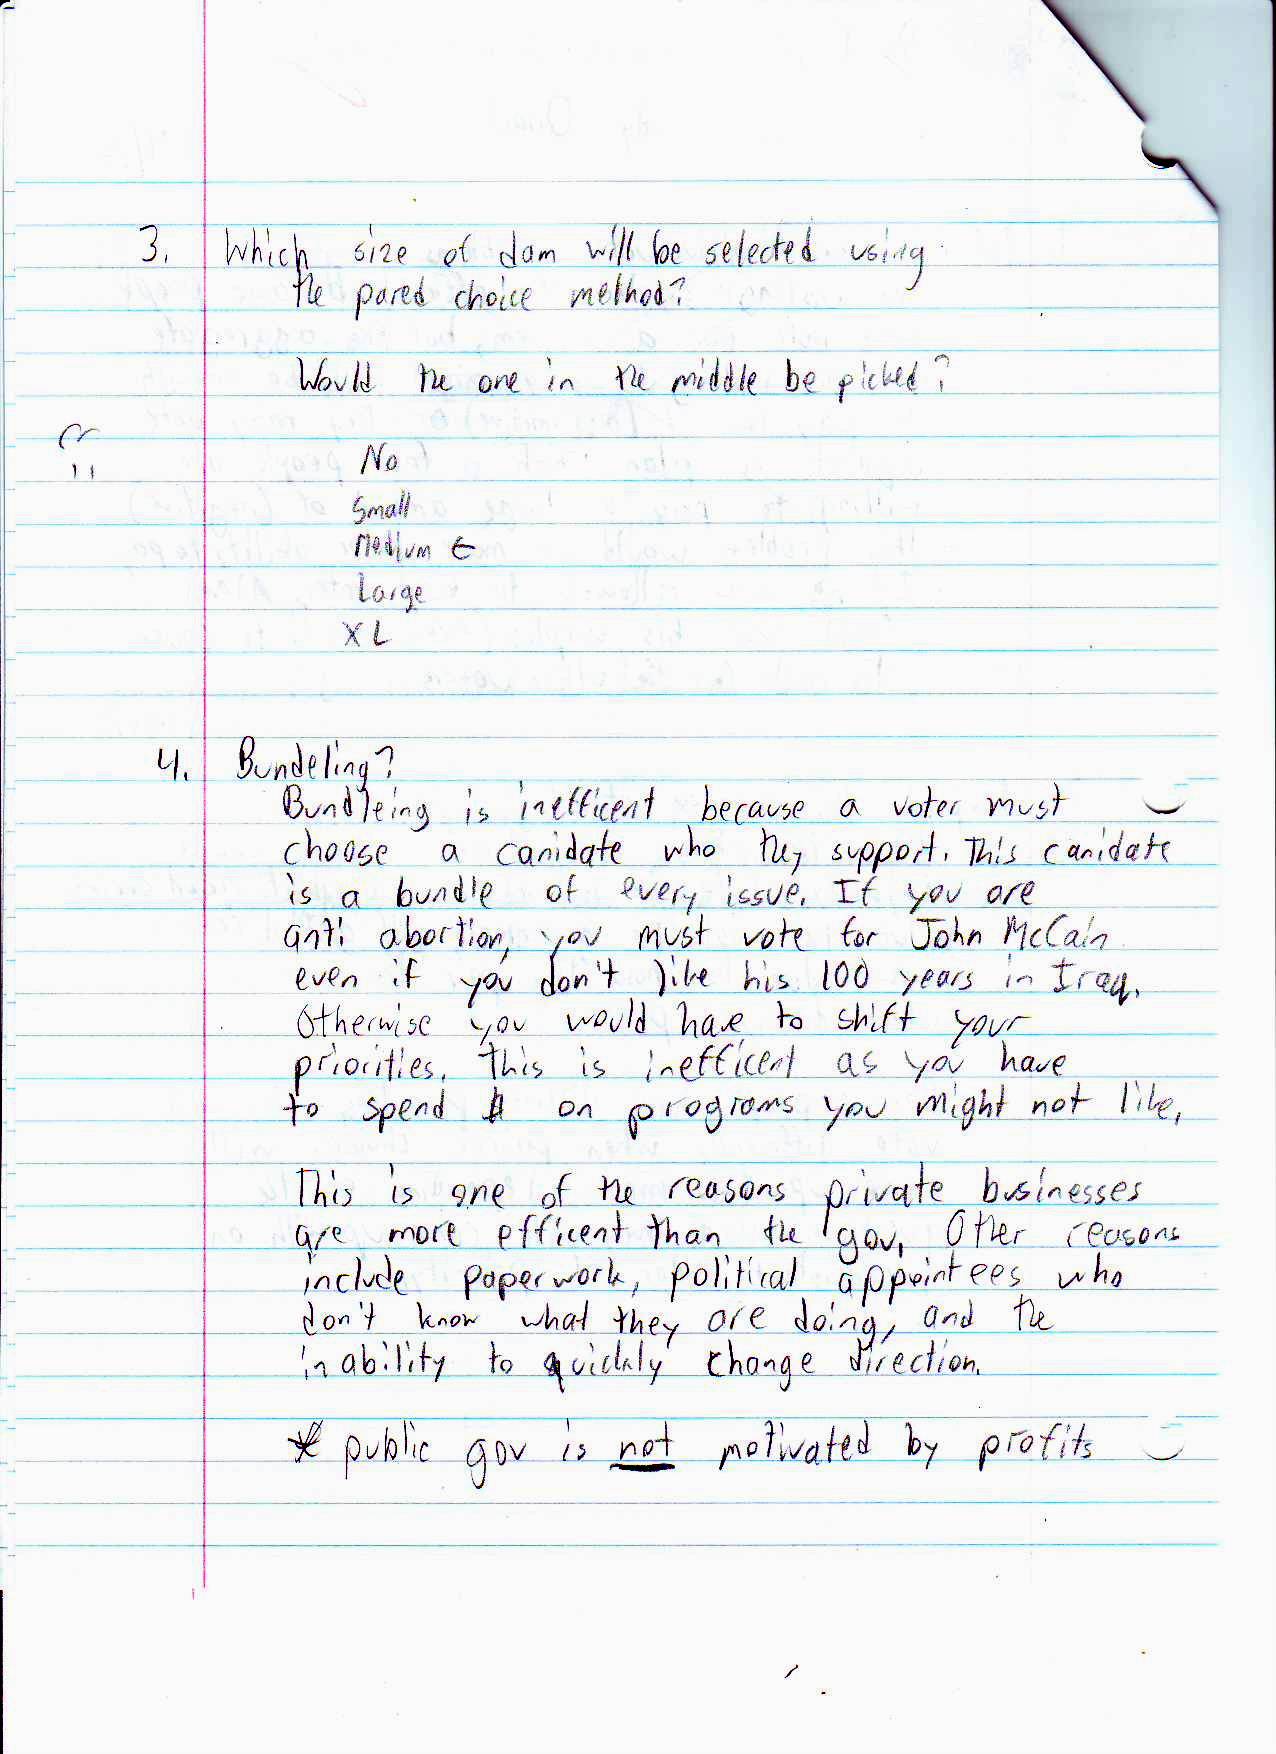 3. Which size of dam will be selected using
the pared choice method?
Would the one in the middle be picked?
No
Small
Medium ←
Large
XL
4. Bundeling?
Bundleing is inefficent because a voter must
choose a canidate who they support. This canidate
is a bundle of every issue. If you are
anti abortion, you must vote for John McCain
even if you don't like his 100 years in Iraq.
Otherwise you would have to shift your
priorities. This is inefficent as you have
to spend $ on programs you might not like,
This is one of the reasons private businesses
are more efficent than the gov, Other reasons
include paperwork, political appointees who
don't know what they are doing, and the
inability to quickly change direction.
* public gov is not motivated by profits